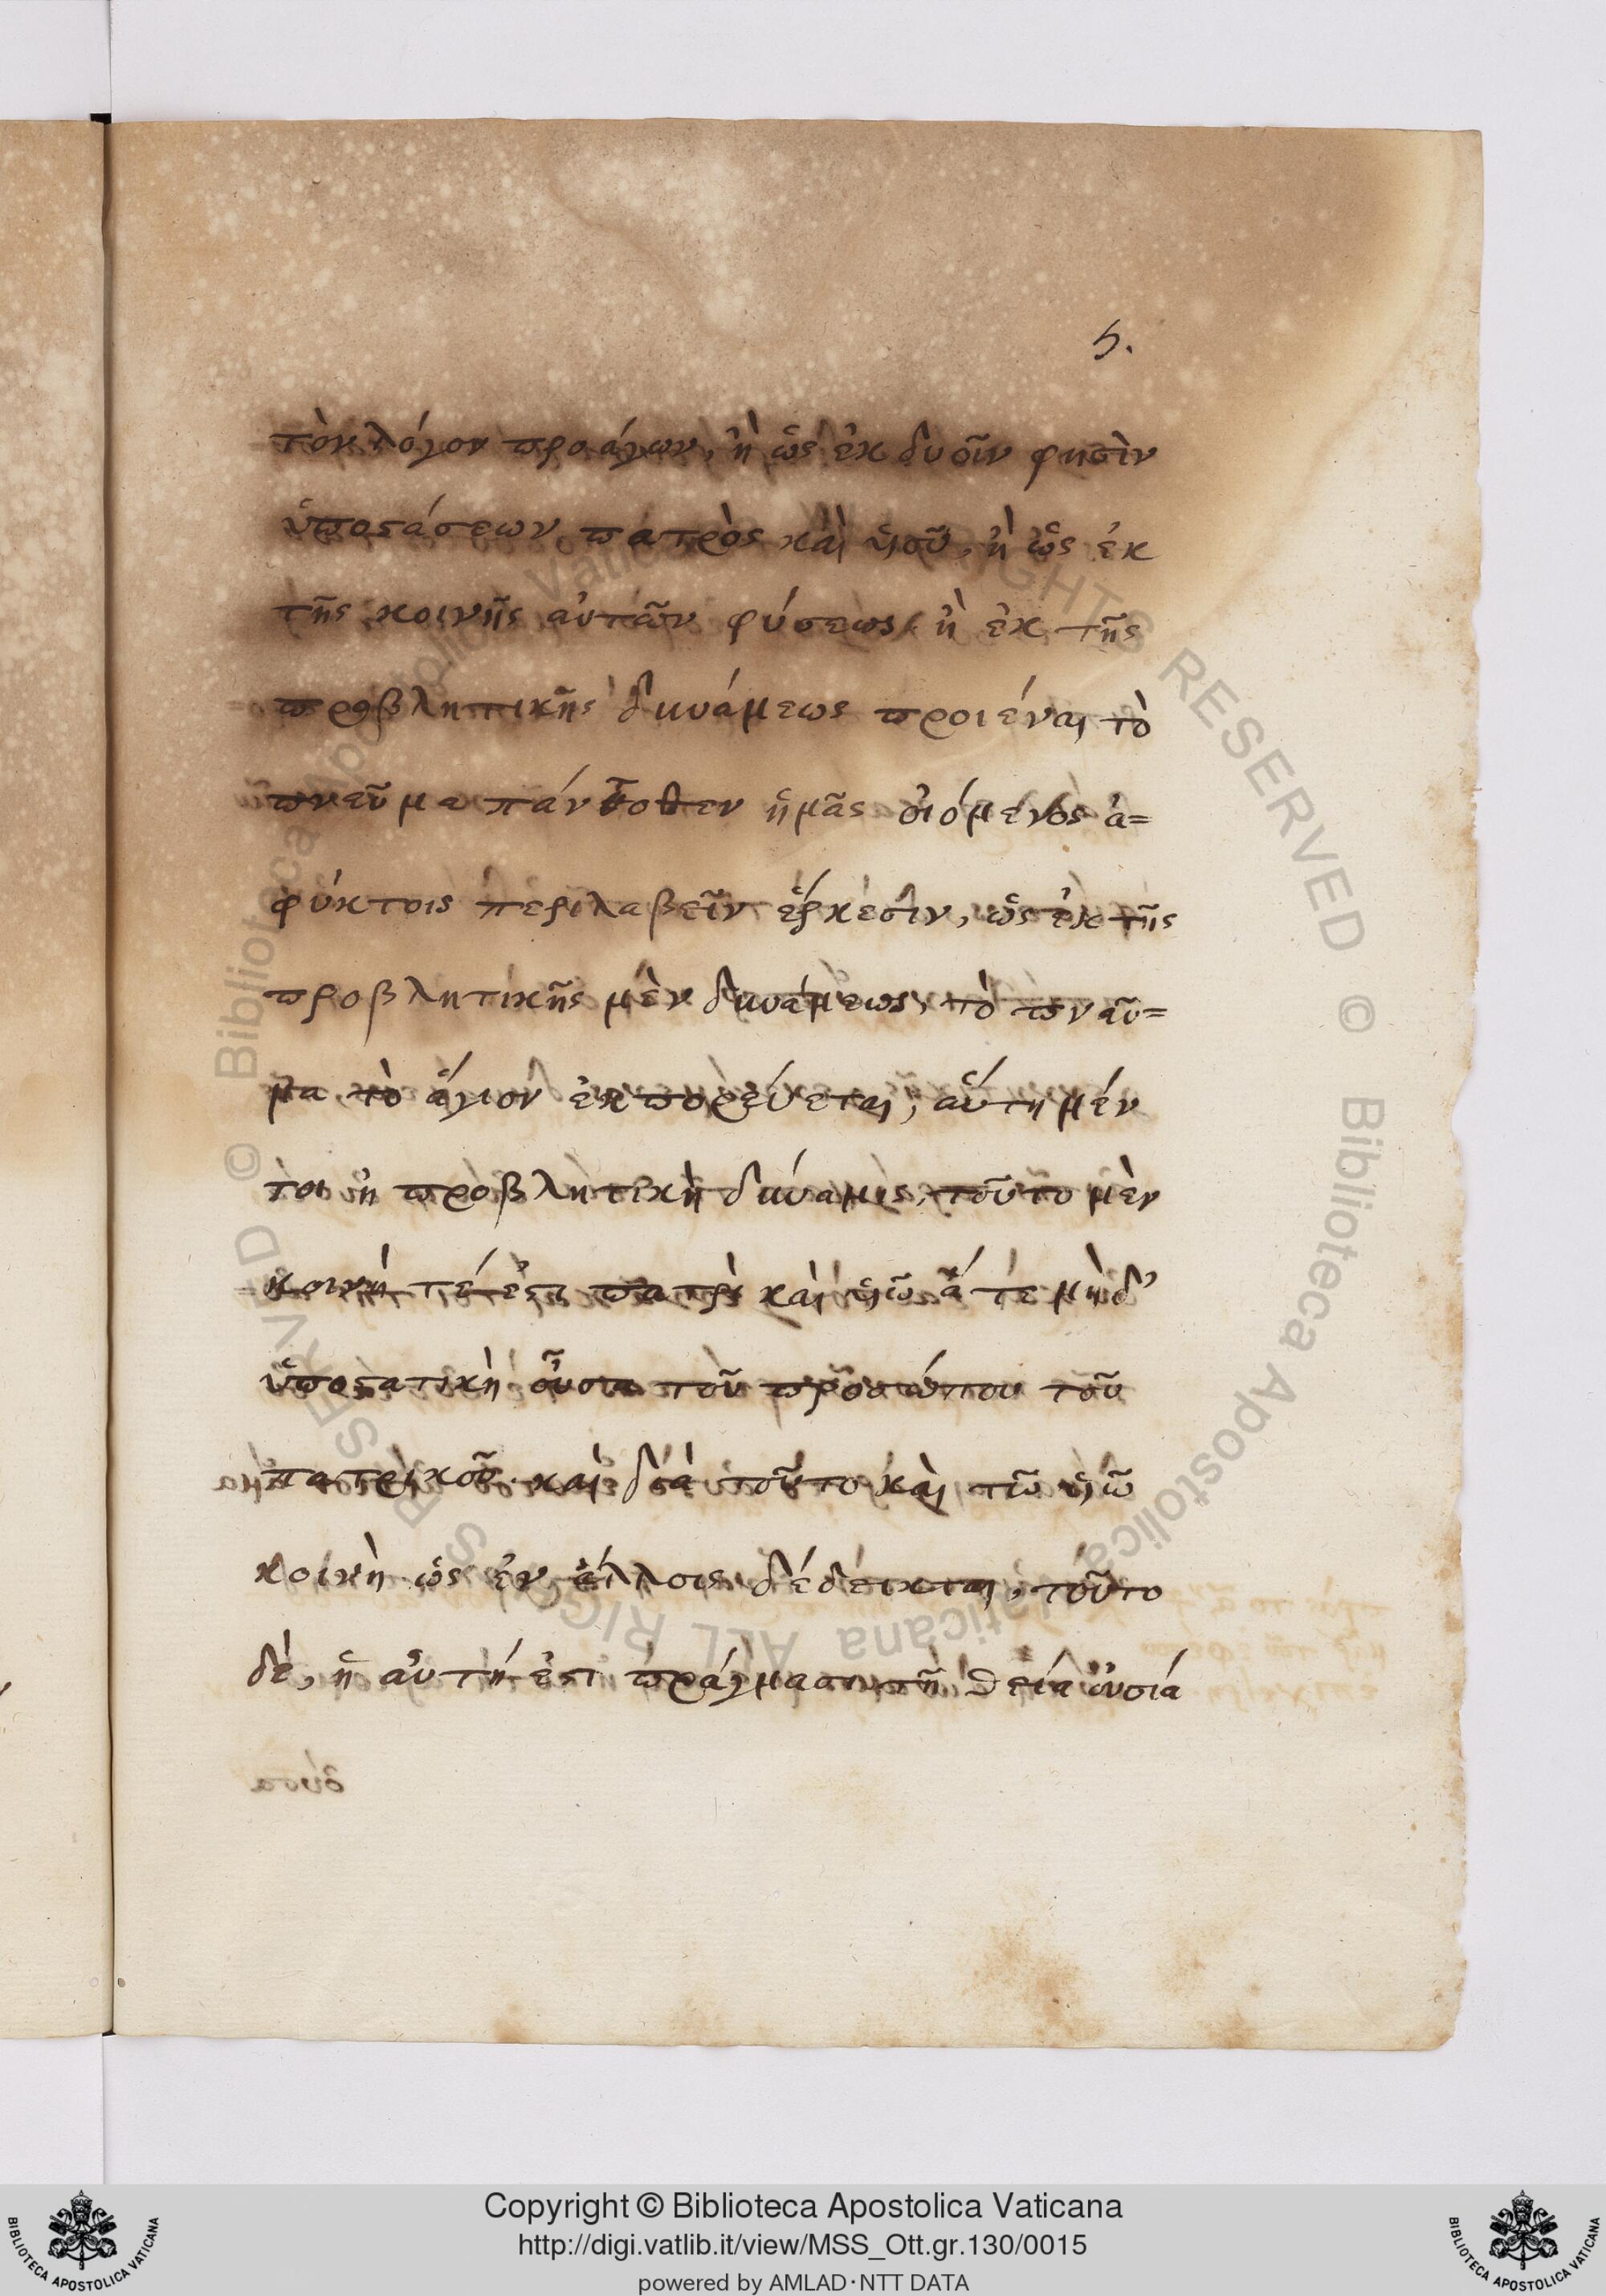 5.
τὸν λόγον προάγων, ἢ ὡς ἐκ δυοῖν φησὶν
ὑποστάσεων πατρὸς καὶ υἱοῦ, ἢ ὡς ἐκ
τῆς κοινῆς αὐτῶν φύσεως, ἢ ἐκ τῆς
προβλητικῆς δυνάμεως προιέναι τὸ
πνεῦμα πάντοθεν ἡμᾶς οἰόμενος ἀ=
φύκτοις περιλαβεῖν ἕρκεσιν, ὡς ἐκ τῆς
προβλητικῆς μὲν δυνάμεως, τὸ πνεῦ=
μα τὸ ἅγιον ἐκπορεύεται, αὕτη μέν
τοι ἡ προβλητικὴ δύναμις, τοῦτο μὲν
κοινή τέ ἐστι πατρὶ καὶ υἱῶ ἅ τε μὴ δ'
ὑποστατικὴ οὖσα τοῦ προσώπου τοῦ
πατρικοῦ. καὶ διὰ τοῦτο καὶ τῶ υἱῶ
κοινὴ ὡς ἐν ἄλλοις δέδεικται, τοῦτο
δὲ, ἡ αὐτή ἐστι πράγματι τῆ θεία οὐσία
Copyright © Biblioteca Apostolica Vaticana
http://digi.vatlib.it/view/MSS_Ott.gr.130/0015
powered by AMLAD·NTT DATA
BIBLIOTECA APOSTOLICA VATICANA
BIBLIOTECA APOSTOLICA VATICANA
© Biblioteca Apostolica Vaticana ALL RIGHTS RESERVED
© Biblioteca Apostolica Vaticana ALL RIGHTS RESERVED